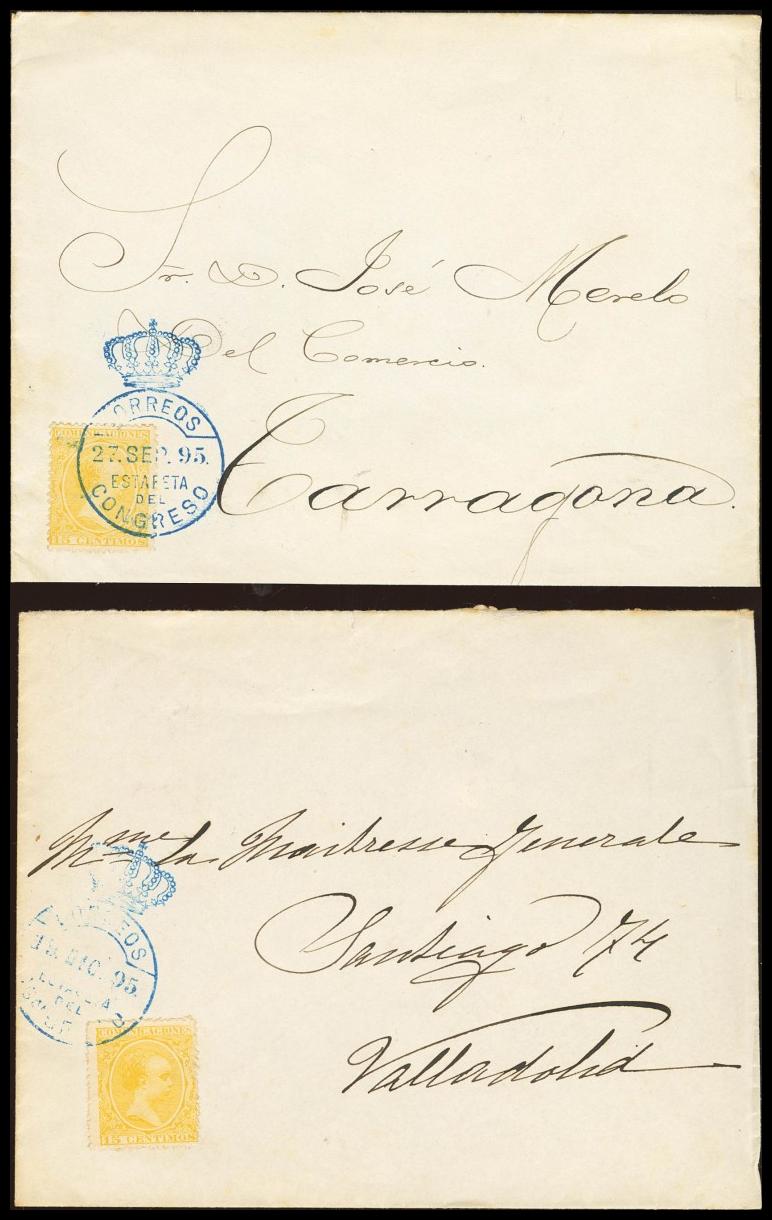 Sr. D. José Merelo
Del Comercio.
Tarragona.
CORREOS
27. SEP. 95.
ESTAFETA
DEL
CONGRESO
COMUNICACIONES
15 CENTIMOS
Mme la Maitresse Generale
Santiago 74
Valladolid
CORREOS
DIC. 95.
DEL
COMUNICACIONES
15 CENTIMOS